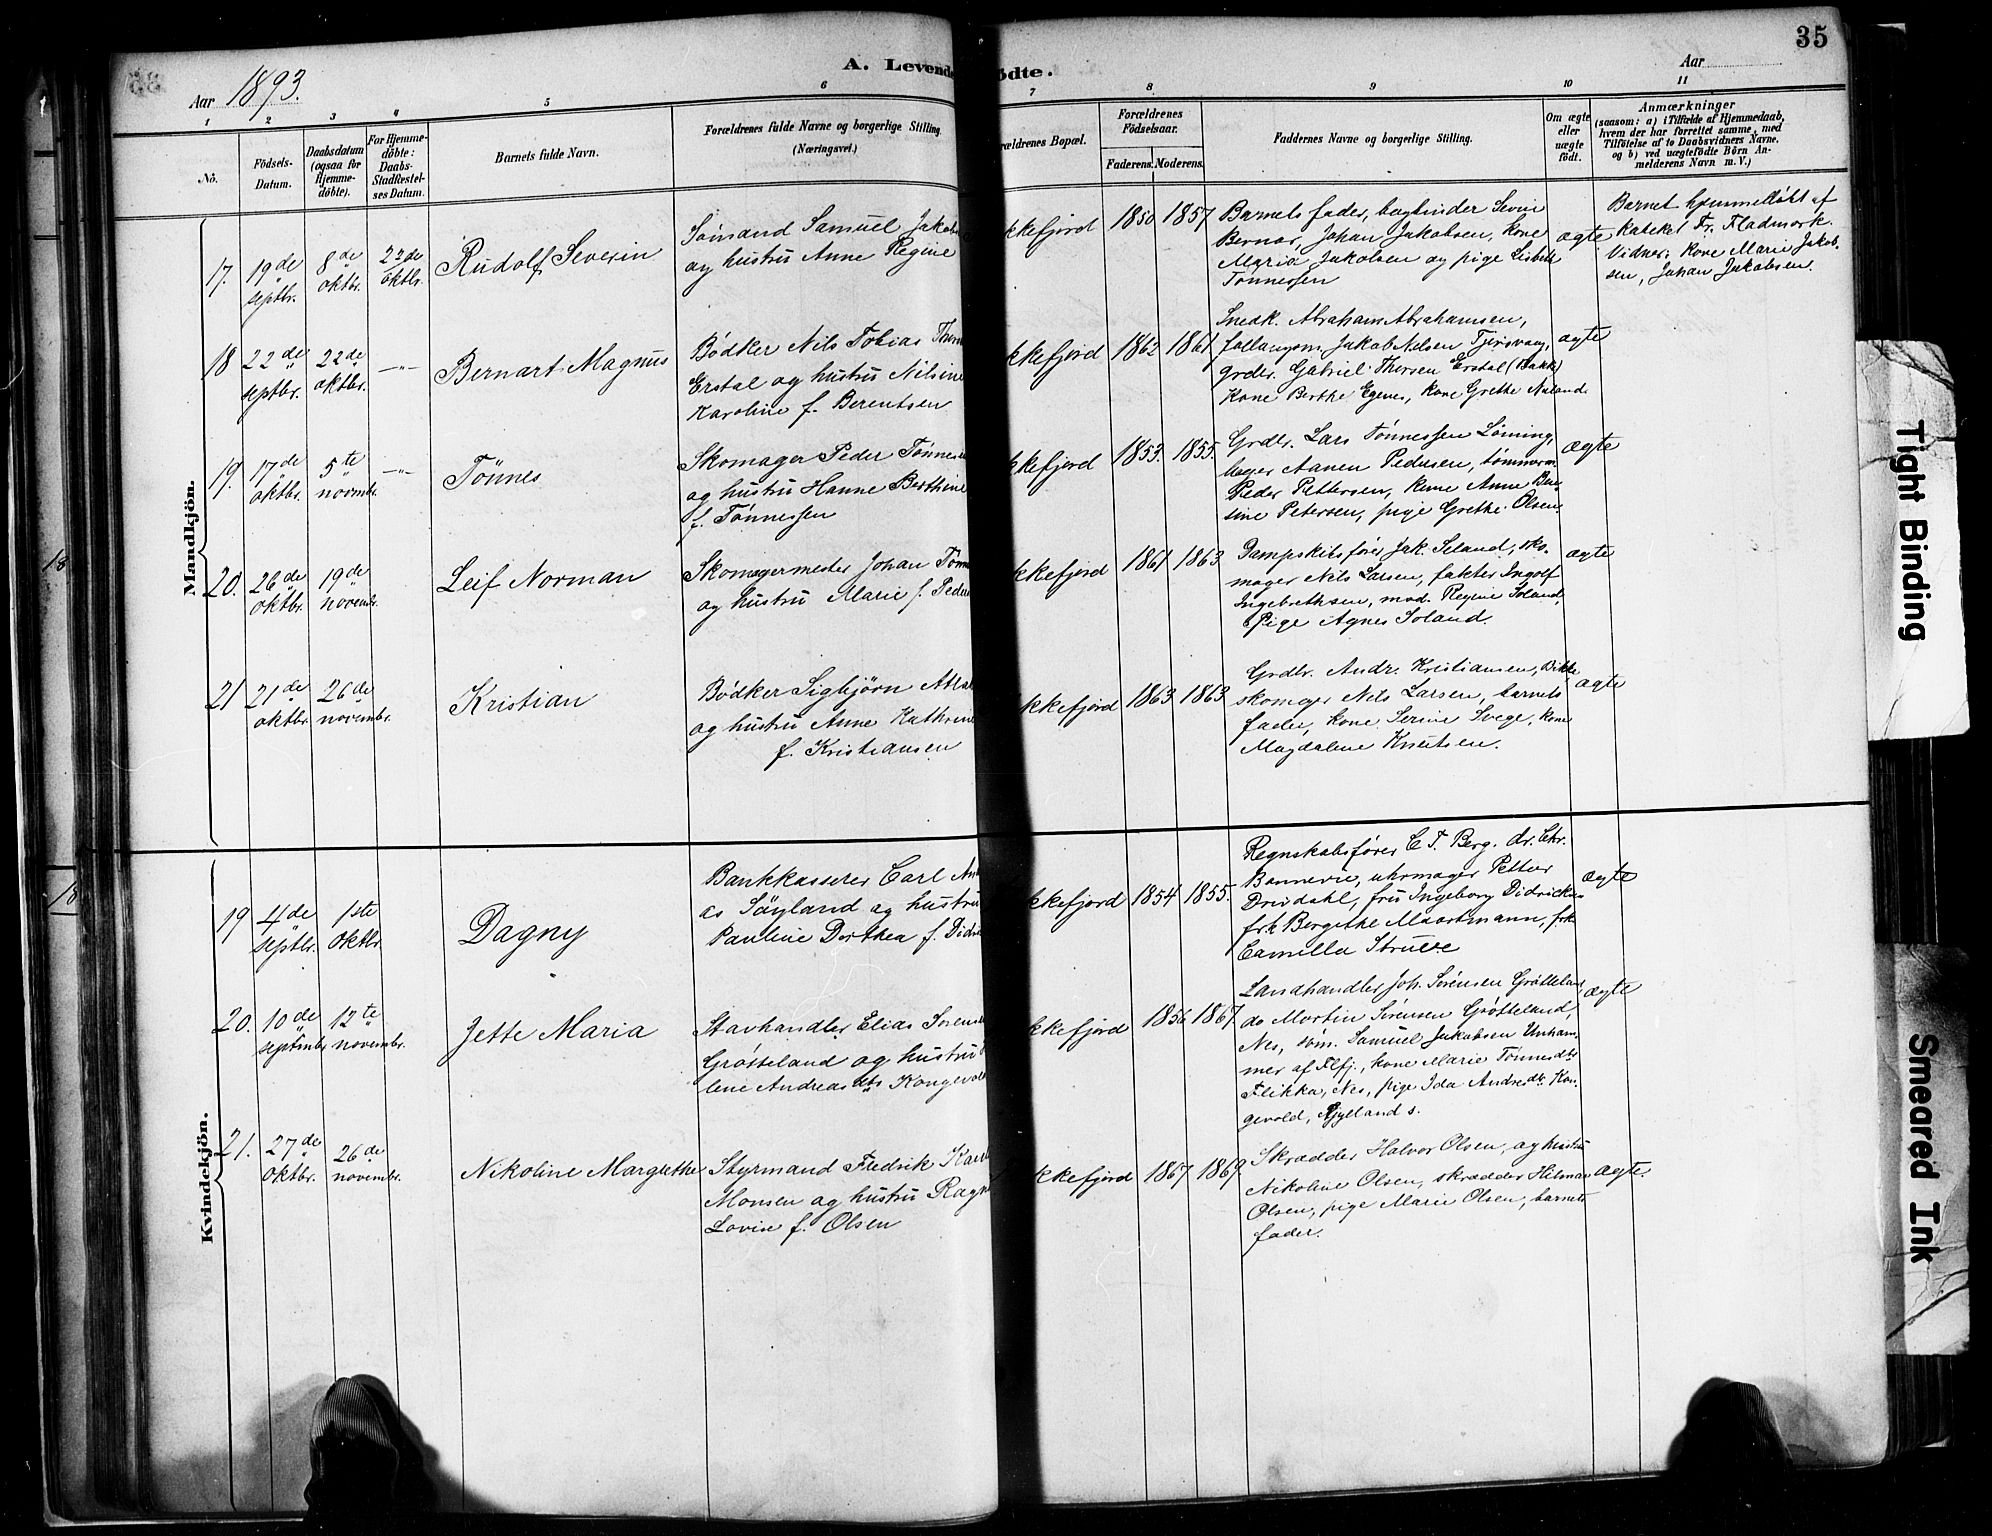 35
A. Levende
ödte.
Aar 1893.
Aar
1 2 3 4 5 6 7 8 9 10 11
No.
Födsels-
Datum.
Daabsdatum
(ogsaa för
Hjemme-
döbte).
For Hjemme-
döbte:
Daabs-
Stadfæstel-
ses Datum.
Barnets fulde Navn.
Forældrenes fulde Navne og borgerlige Stilling.
(Næringsvei.)
rældrenes Bopæl.
Forældrenes
Födselsaar.
Faderens. Moderens.
Faddernes Navne og borgerlige Stilling.
Om ægte
eller
uægte
födt.
Anmærkninger
(saasom: a) i Tilfælde af Hjemmedaab,
hvem der har forrettet samme, med
Tilföielse af to Daabsvidners Navne,
og b) ved uægtefödte Börn An-
melderens Navn m. V.)
Mandkjön.
17. 19de septbr.
8de oktbr.
22de oktbr.
Rudolf Severin
Sömand Samuel Jakob
og hustru Anne Regine
kkefjord 1850 1857
Barnets fader, bogbinder
Johan Jakobsen, kone
Maria Jakobsen og pige Lisbeth
Tønnessen
ægte
Barnet hjemmedøbt af
kateket Fr. Fladmork.
Vidner: kone Marie Jakob-
sen, Johan Jakobsen.
18 22de septbr.
22de oktbr.
—"—
Bernart Magnus
Bødker Nils Tobias
Erstal og hustru Nilsine
Karoline f. Berentsen
kkefjord 1862 1861
Snedk. Abraham Abrahamsen,
Jakob Nilsen Tjørsvaag,
grdbr. Gabriel Thorsen Erstal (Bakk)
kone Berthe Egenes, kone Grethe
ægte
19. 17de oktbr.
5te novembr.
—"—
Tönnes
Skomager Peder Tønnes
og hustru Hanne Berthine
f. Tønnessen
kkefjord 1853. 1855.
Grdbr. Lars Tønnessen Löining,
Aanen Pedersen, tømmerm.
Peder Pettersen, kone Anne Ber-
sine Petersen, pige Grethe Olsen.
ægte
20. 26de oktbr.
19de novembr.
Leif Norman
Skomagermester Johan Tönn
og hustru Marie f. Peders
kkefjord 1861 1863
Dampskibsfører Jak. Seland, sko-
mager Nils Larsen, faktor Ingolf
Ingebrethsen, mad. Regine Soland,
pige Agnes Soland.
ægte
21 21de oktbr.
26de novembr.
Kristian
Bødker Sigbjørn
og hustru Anne Kathrine
f. Kristiansen
kkefjord 1863 1863.
Grdbr. Andr. Kristiansen,
skomager Nils Larsen, barnets
fader, kone Serine Svege, kone
Magdalene Knutsen.
ægte
Kvindekjön.
19 4de septbr.
1ste oktbr.
Dagny
Bankkasserer Carl
as Söyland og hustru
Pauline Dorthea f. Didri
kkefjord 1854 1855.
Regnskabsfører C. T. Berg. dr. Chr.
Bonnevie, uhrmager Petter
fru Ingeborg
frk Bergithe Maartmann, frk
Camilla Struwe
ægte
20. 10de septmbr.
12te novembr.
Jette Maria
Stavhandler Elias Sørens
Grøtteland og hustru
lene Andreasdtr Kongevold
kkefjord 1856 1867.
Landhandler Joh. Sørensen Grøtteland,
do Martin Sørensen Grøtteland,
Nes, søm. Samuel Jakobsen Unham-
mer af Flfj., kone Marie Tønnesdtr
Flikka, Nes, pige Ida Andreasdtr Kon-
gevold, Fjyllands.
ægte
21. 27de oktbr.
26de novembr.
Nikoline Margrethe
Styrmand Fredrik
Monsen og hustru Ragn
Lovise f. Olsen
kkefjord 1867 1869.
Skrædder Halvor Olsen, og hustru
Nikoline Olsen, skrædder Hilman
Olsen, pige Marie Olsen, barnets
fader.
ægte.
Tight Binding
Smeared Ink